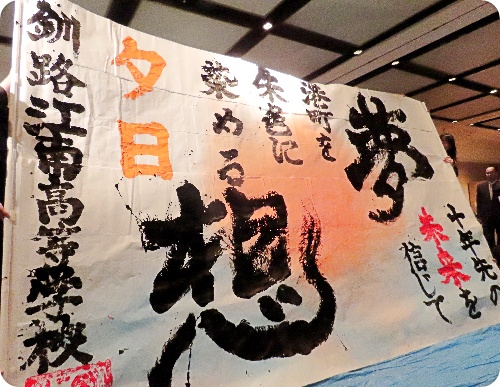 夢
港町を
朱色に
染める
夕日
想
十年先の
未来を
信じて
釧路江南高等学校